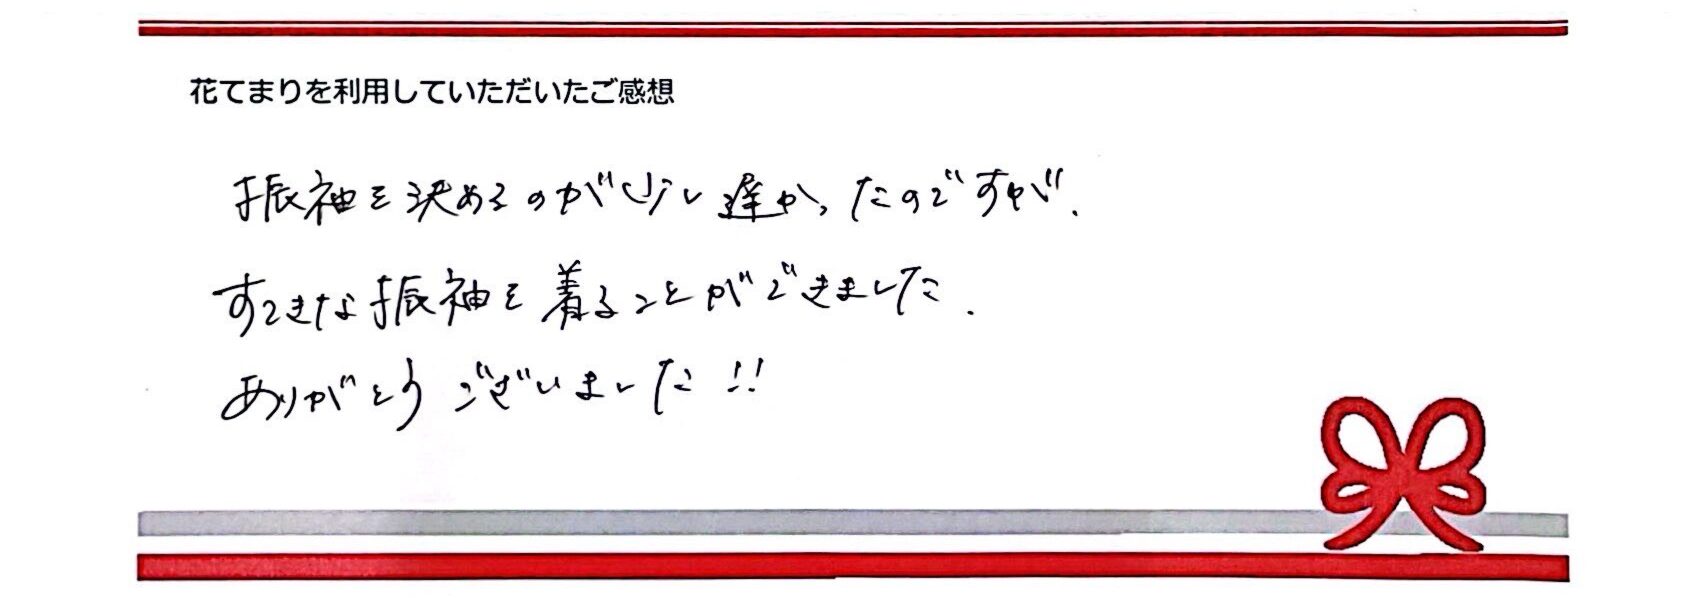 花てまりを利用していただいたご感想
振袖を決めるのが少し遅かったのですが、
すてきな振袖を着ることができました。
ありがとうございました!!